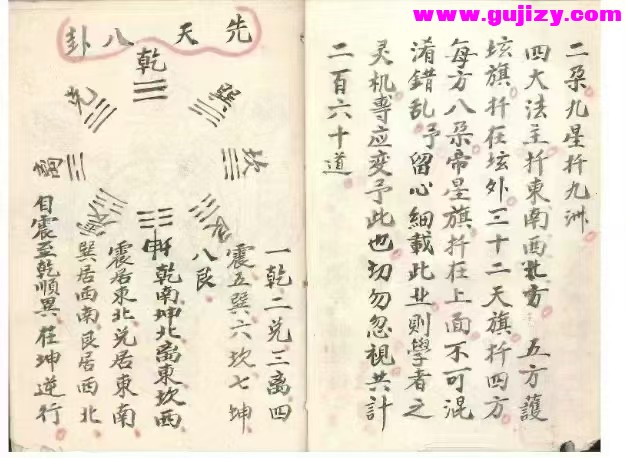 www.gujizy.com
二朶九星扦九洲
四大法主扦東南西北方 五方護
坛旗扦在坛外三十二天旗扦四方
每方八朶帝星旗扦在上面不可混
淆錯乱予留心細載此业則學者之
灵机專应变予此也切勿忽視共計
二百六十道
先天八卦
乾
巽
坎
艮
坤
震
离
兑
一乾二兑三离四
震五巽六坎七坤
八艮
乾南坤北离東坎西
震居東北兑居東南
巽居西南艮居西北
自震至乾順異在坤逆行